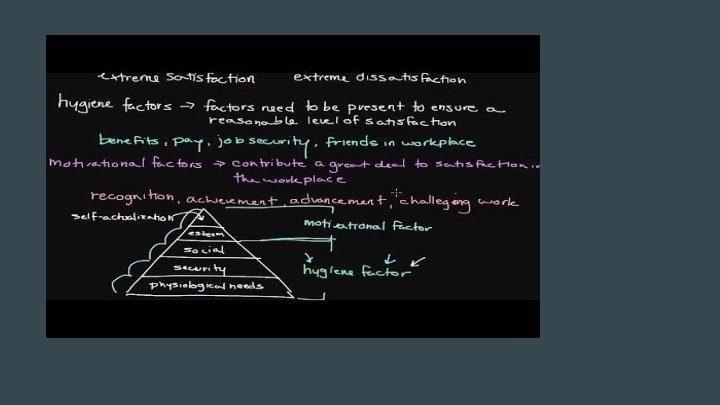 extreme satisfaction extreme dissatisfaction
hygiene factors → factors need to be present to ensure a
reasonable level of satisfaction
benefits, pay, job security, friends in workplace
motivational factors → contribute a great deal to satisfaction in
the workplace
recognition, achievement, advancement, challeging work
self-actualization
motivational factor
esteem
social
security
hygiene factor
physiological needs